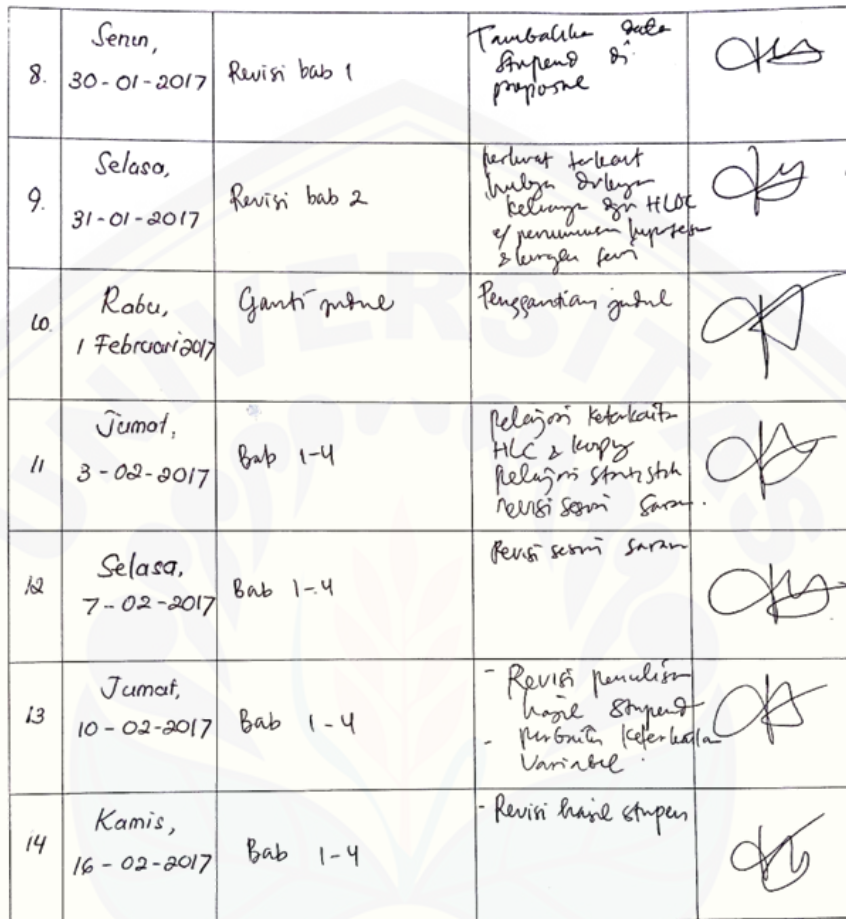 8.
Senin,
30-01-2017
Revisi bab 1
Tambahkan data
Stupend di
proposal
9.
Selasa,
31-01-2017
Revisi bab 2
perkuat terkait
keluarga dgn HLOC
10.
Rabu,
1 Februari 2017
Ganti judul
Penggantian judul
11
Jumat,
3-02-2017
Bab 1-4
Pelajari keterkaitan
HLC &
Pelajari statistik
revisi sesuai saran.
12
Selasa,
7-02-2017
Bab 1-4
Revisi sesuai saran
13
Jumat,
10-02-2017
Bab 1-4
- Revisi penulisan
hasil stupend
- keterkaitan
Variabel.
14
Kamis,
16-02-2017
Bab 1-4
- Revisi hasil stupen
UNIVERSITAS